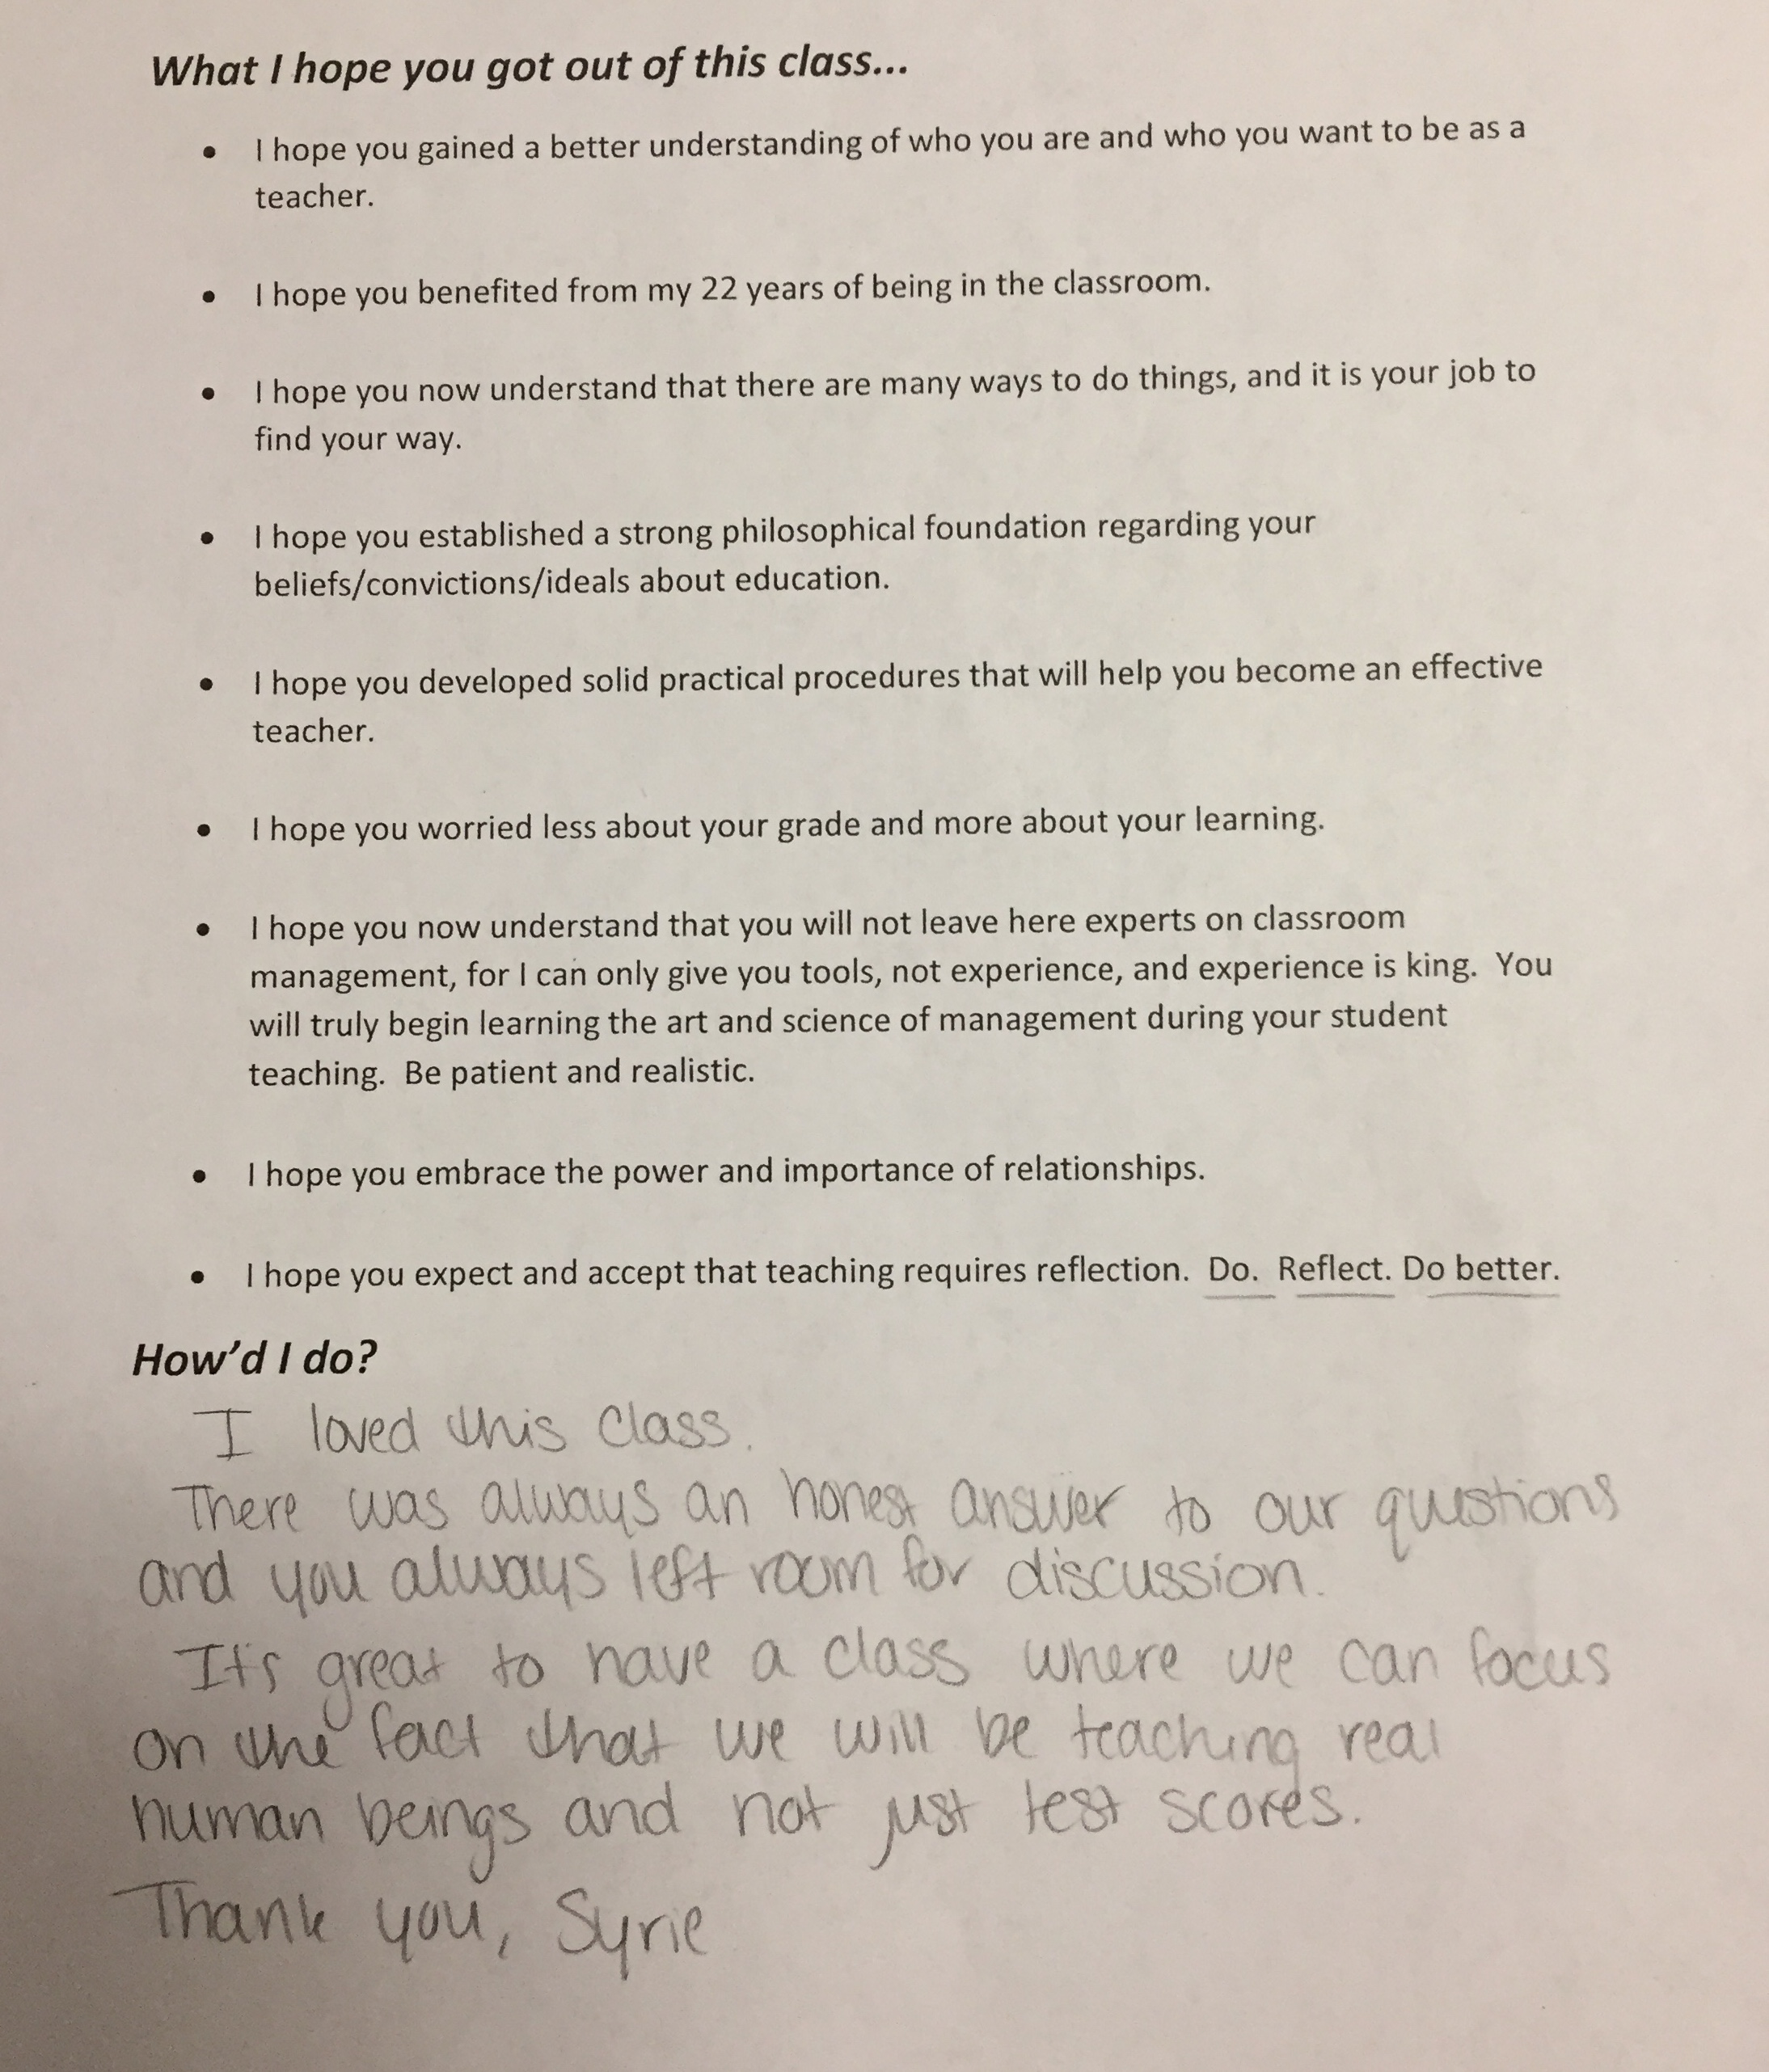 What I hope you got out of this class...
• I hope you gained a better understanding of who you are and who you want to be as a
teacher.
• I hope you benefited from my 22 years of being in the classroom.
• I hope you now understand that there are many ways to do things, and it is your job to
find your way.
• I hope you established a strong philosophical foundation regarding your
beliefs/convictions/ideals about education.
• I hope you developed solid practical procedures that will help you become an effective
teacher.
• I hope you worried less about your grade and more about your learning.
• I hope you now understand that you will not leave here experts on classroom
management, for I can only give you tools, not experience, and experience is king.  You
will truly begin learning the art and science of management during your student
teaching.  Be patient and realistic.
• I hope you embrace the power and importance of relationships.
• I hope you expect and accept that teaching requires reflection.  Do.  Reflect. Do better.
How'd I do?
I loved this class.
There was always an honest answer to our questions
and you always left room for discussion.
It's great to have a class where we can focus
on the fact that we will be teaching real
human beings and not just test scores.
Thank you, Syrie